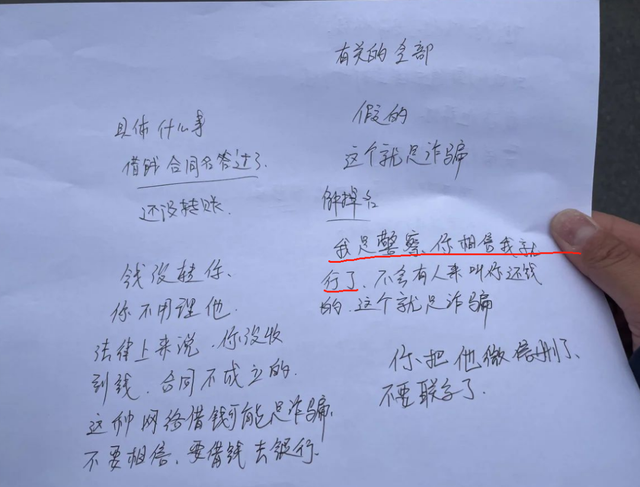 具体什么事
借钱合同书签过了.
还没转账.
钱没转你、
你不用理他.
法律上来说.你没收
到钱.合同不成立的.
这种网络借钱可能是诈骗.
不要相信、要借钱去银行.
有关的全部
假的
这个就是诈骗
删掉了
我是警察、你相信我就
行了、不会有人来叫你还钱
的、这个就是诈骗
你、把他微信删了、
不要联系了.